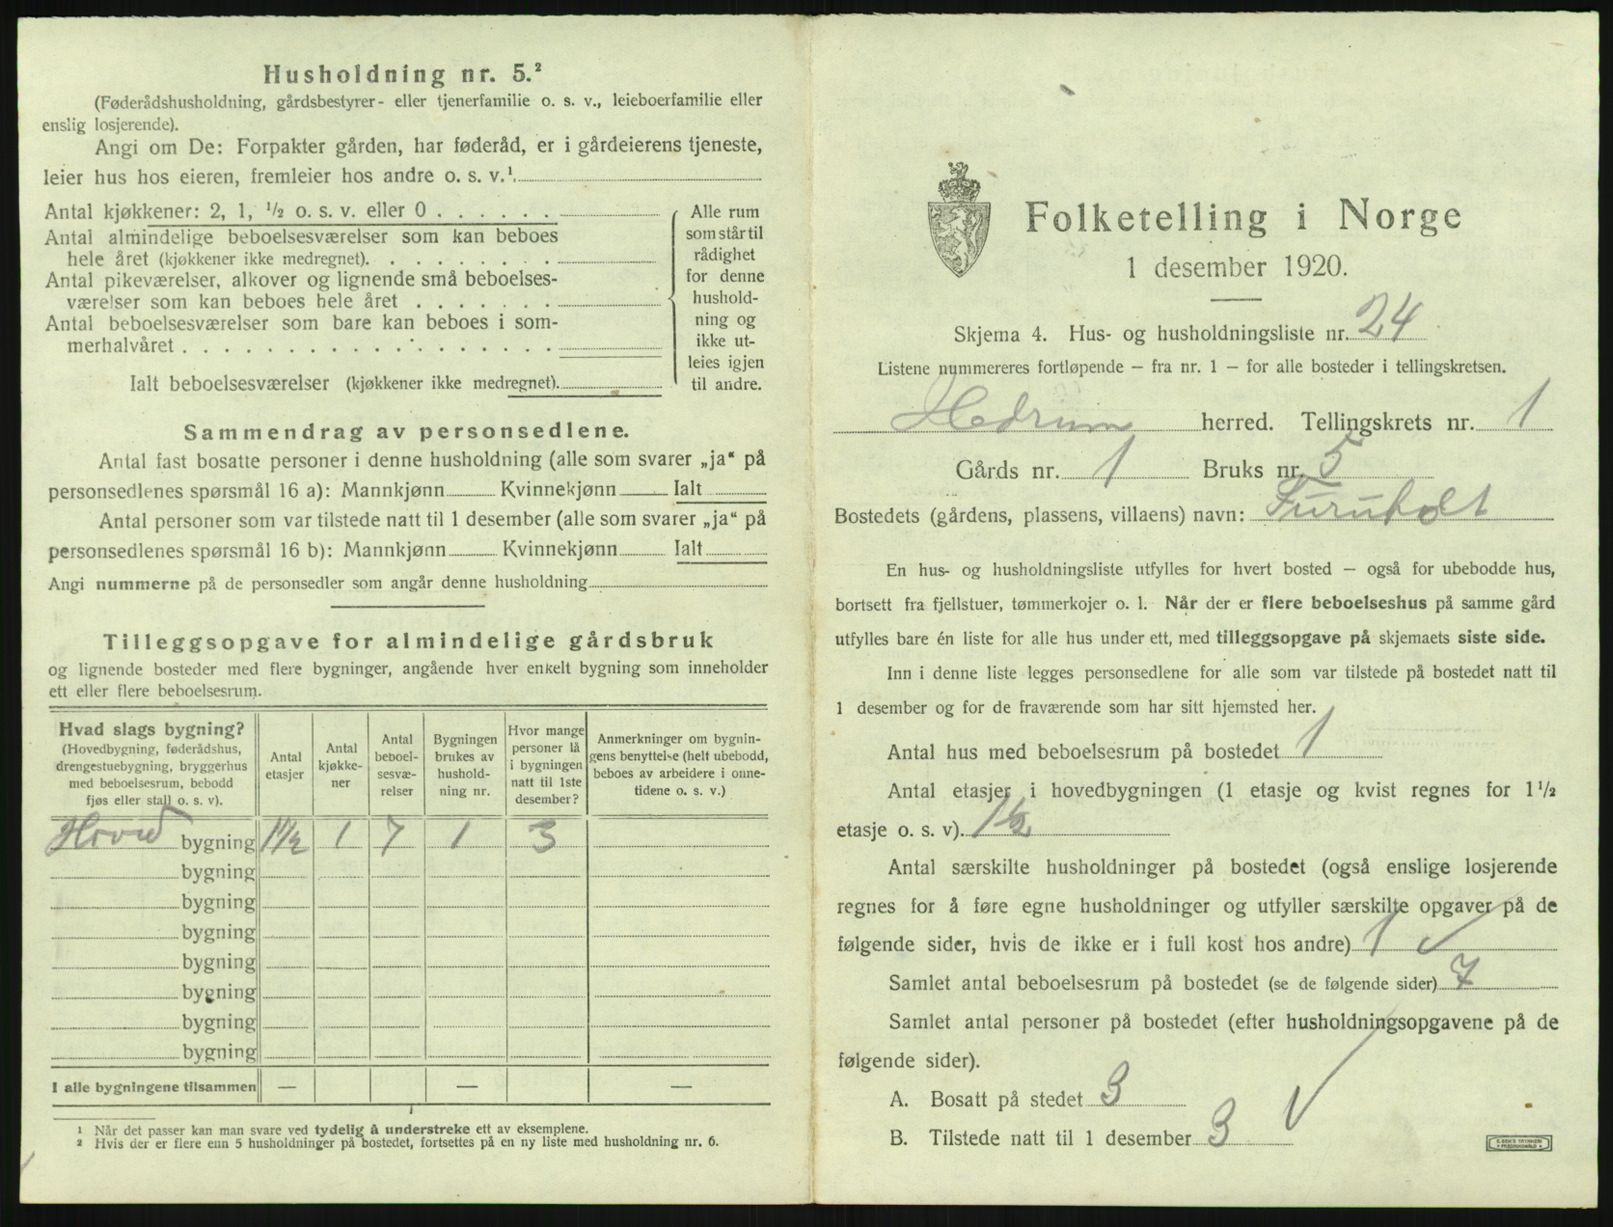 Husholdning nr. 5.²
(Føderådshusholdning, gårdsbestyrer- eller tjenerfamilie o. s. v., leieboerfamilie eller
enslig losjerende).
Angi om De: Forpakter gården, har føderåd, er i gårdeierens tjeneste,
leier hus hos eieren, fremleier hos andre o. s. v.¹.
Antal kjøkkener: 2, 1, ½ o. s. v. eller 0 . . . . . .
Antal almindelige beboelsesværelser som kan beboes
hele året (kjøkkener ikke medregnet). . . . . . . .
Antal pikeværelser, alkover og lignende små beboelses-
værelser som kan beboes hele året . . . . . . .
Antal beboelsesværelser som bare kan beboes i som-
merhalvåret . . . . . . . . . . . . . . . . . .
Ialt beboelsesværelser (kjøkkener ikke medregnet).
Alle rum
som står til
rådighet
for denne
hushold-
ning og
ikke ut-
leies igjen
til andre.
Sammendrag av personsedlene.
Antal fast bosatte personer i denne husholdning (alle som svarer „ja“ på
personsedlenes spørsmål 16 a): Mannkjønn Kvinnekjønn Ialt
Antal personer som var tilstede natt til 1 desember (alle som svarer „ja“ på
personsedlenes spørsmål 16 b): Mannkjønn Kvinnekjønn Ialt
Angi nummerne på de personsedler som angår denne husholdning
Tilleggsopgave for almindelige gårdsbruk
og lignende bosteder med flere bygninger, angående hver enkelt bygning som inneholder
ett eller flere beboelsesrum.
Hvad slags bygning?
(Hovedbygning, føderådshus,
drengestuebygning, bryggerhus
med beboelsesrum, bebodd
fjøs eller stall o. s. v).
Antal
etasjer
Antal
kjøkke-
ner
Antal
beboel-
sesvæ-
relser
Bygningen
brukes av
hushold-
ning nr.
Hvor mange
personer lå
i bygningen
natt til 1ste
desember?
Anmerkninger om bygnin-
gens benyttelse (helt ubebodd,
beboes av arbeidere i onne-
tidene o. s. v.)
Hoved bygning 1½ 1 7 1 3
bygning
bygning
bygning
bygning
bygning
bygning
bygning
I alle bygningene tilsammen — — —
¹ Når det passer kan man svare ved tydelig å understreke ett av eksemplene.
² Hvis der er flere enn 5 husholdninger på bostedet, fortsettes på en ny liste med husholdning nr. 6.
Folketelling i Norge
1 desember 1920.
Skjema 4. Hus- og husholdningsliste nr. 24
Listene nummereres fortløpende — fra nr. 1 — for alle bosteder i tellingskretsen.
Hedrum herred. Tellingskrets nr. 1
Gårds nr. 1 Bruks nr. 5
Bostedets (gårdens, plassens, villaens) navn: Furuholt
En hus- og husholdningsliste utfylles for hvert bosted — også for ubebodde hus,
bortsett fra fjellstuer, tømmerkojer o. l. Når der er flere beboelseshus på samme gård
utfylles bare én liste for alle hus under ett, med tilleggsopgave på skjemaets siste side.
Inn i denne liste legges personsedlene for alle som var tilstede på bostedet natt til
1 desember og for de fraværende som har sitt hjemsted her.
Antal hus med beboelsesrum på bostedet 1
Antal etasjer i hovedbygningen (1 etasje og kvist regnes for 1½
etasje o. s. v). 1½
Antal særskilte husholdninger på bostedet (også enslige losjerende
regnes for å føre egne husholdninger og utfyller særskilte opgaver på de
følgende sider, hvis de ikke er i full kost hos andre) 1 ✓
Samlet antal beboelsesrum på bostedet (se de følgende sider) 7
Samlet antal personer på bostedet (efter husholdningsopgavene på de
følgende sider).
A. Bosatt på stedet 3
B. Tilstede natt til 1 desember 3 ✓